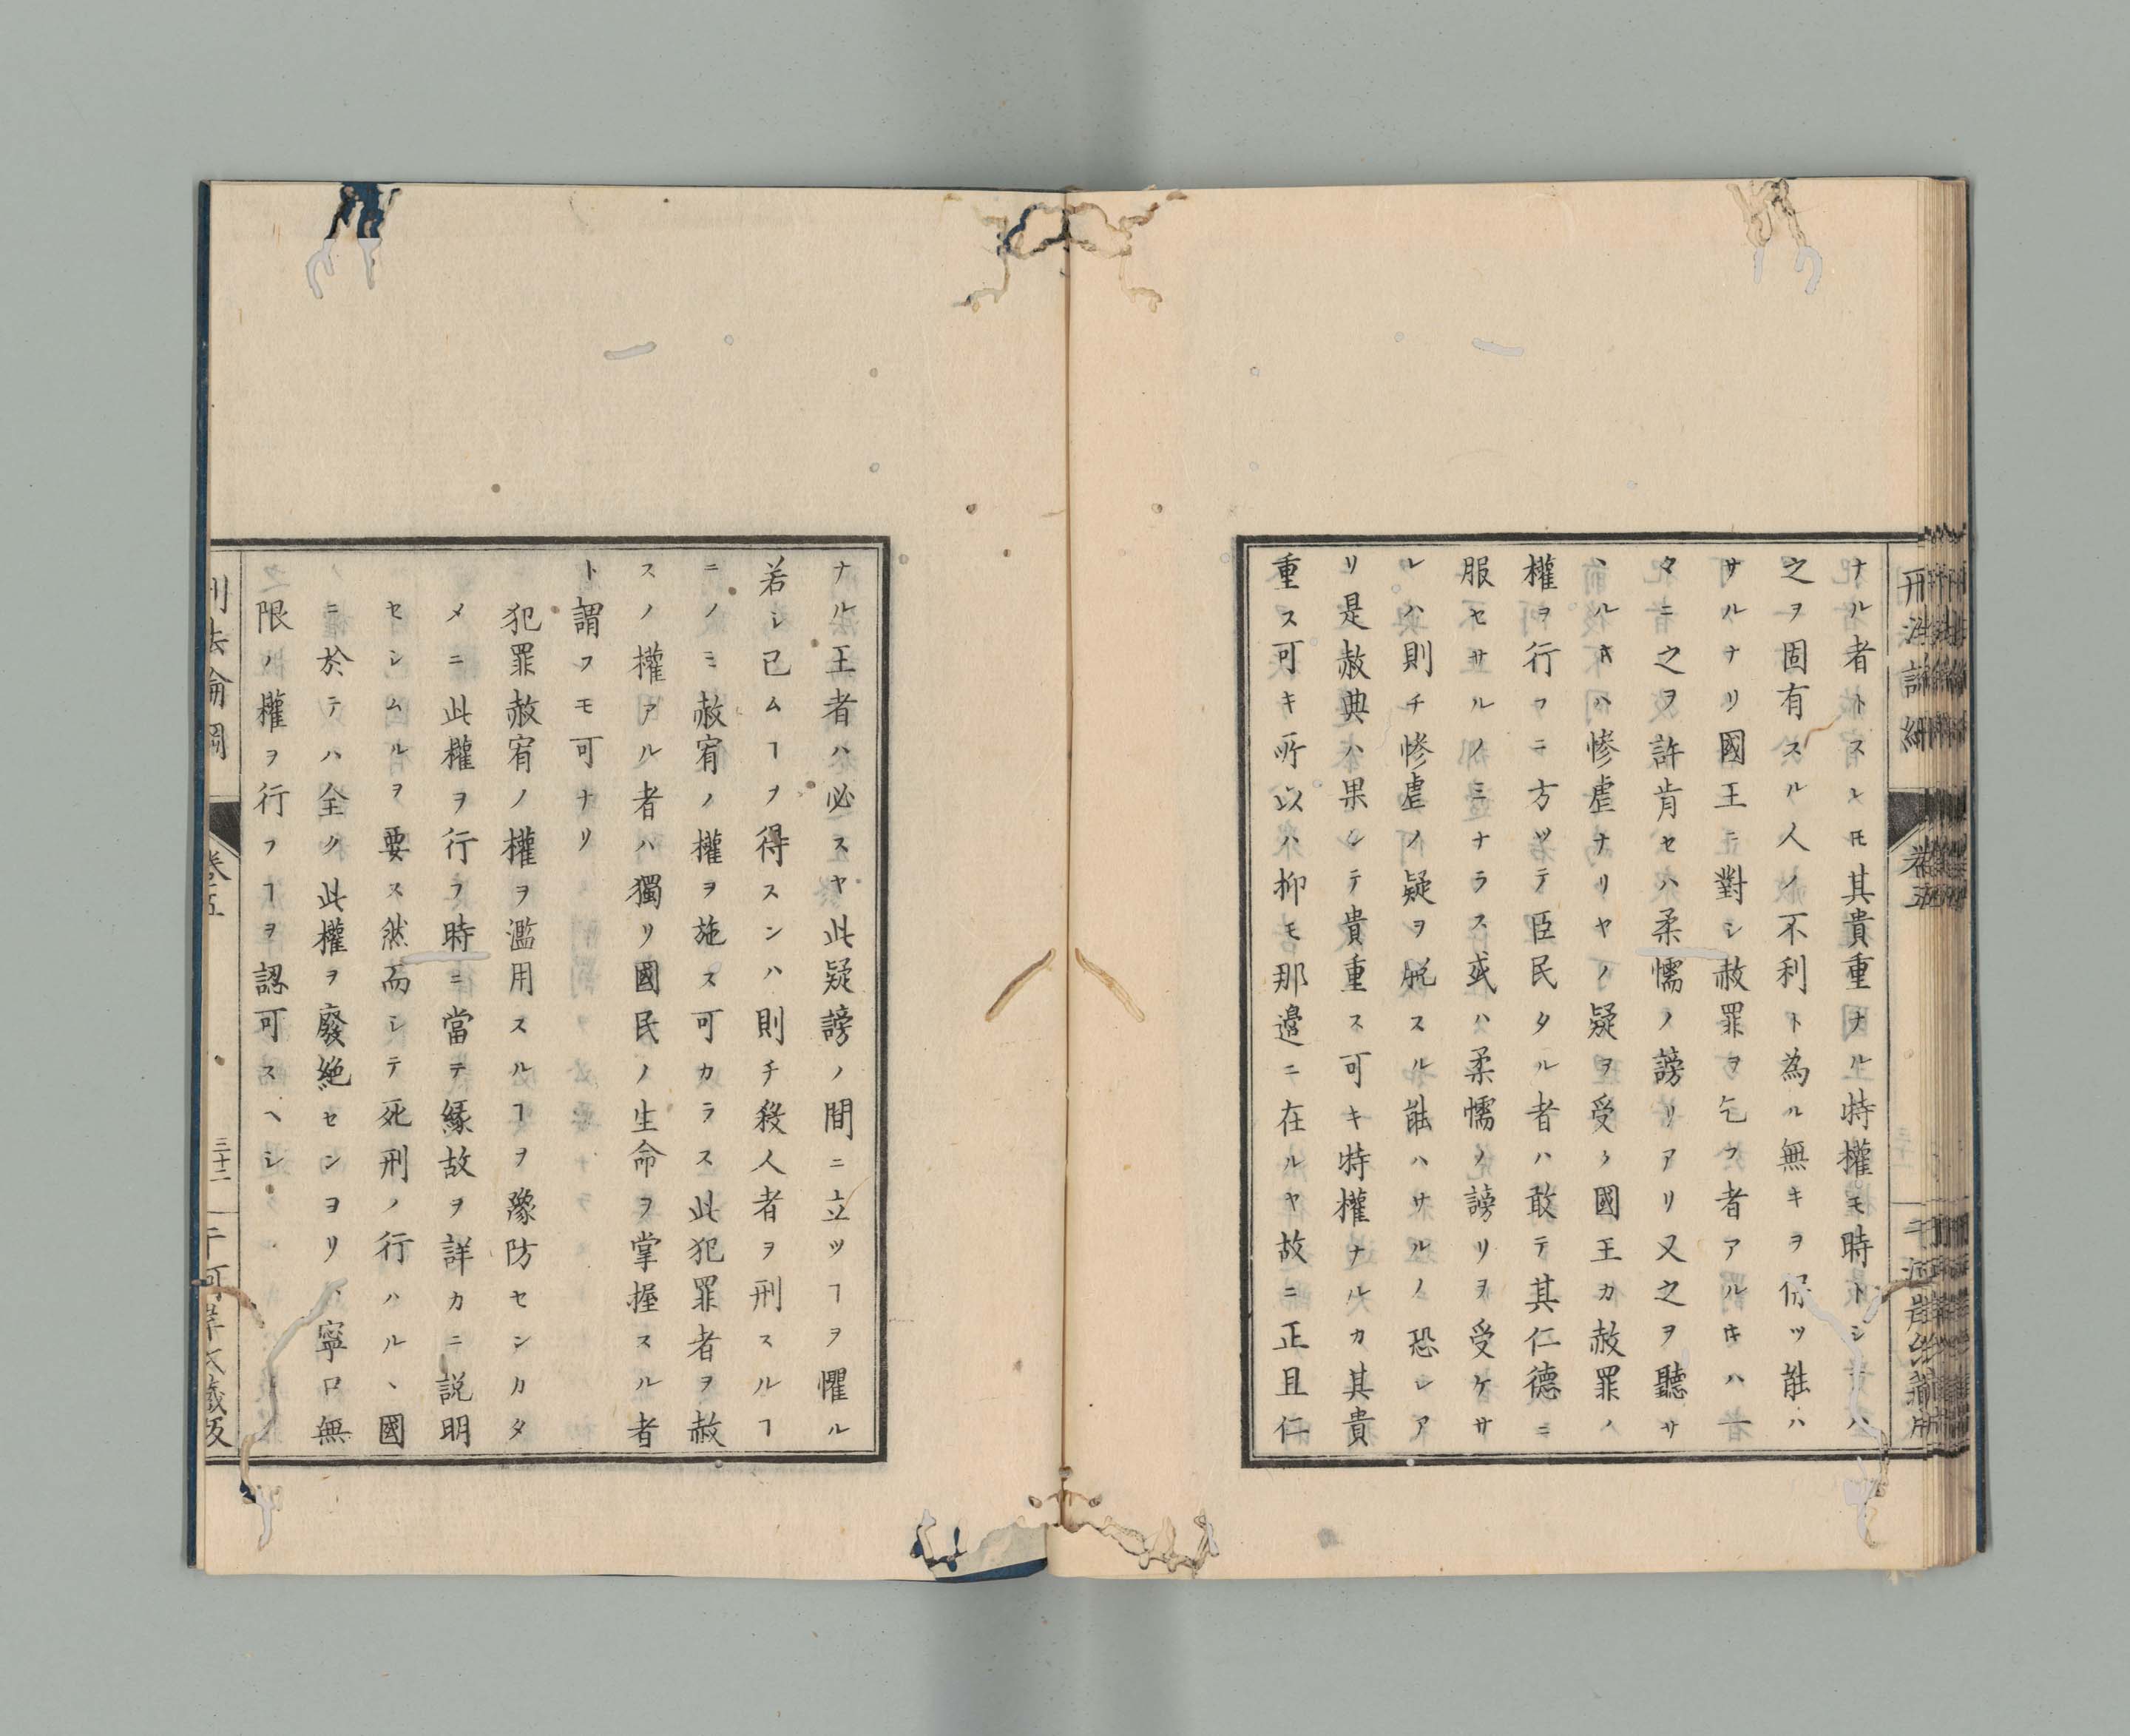 ナル者トスレ𪜈其貴重ナル特權モ時トシハ
之ヲ固有スル人ノ不利ト為ル無キヲ保ツ能ハ
サルナリ國王ニ對シ赦罪ヲ乞フ者アル𪜈ハ
タニ之ヲ許肯セハ柔懦ノ謗リアリ又之ヲ聽サ
ヽル𪜈ハ惨虐ナリヤノ疑ヲ受ク國王カ赦罪ノ
權ヲ行フニ方ツテ臣民タル者ハ敢テ其仁德ニ
服セサルノミナラス或ハ柔懦ノ謗リヲ受ケサ
レハ則チ惨虐ノ疑ヲ脱スル能ハサルノ恐レア
リ是赦典ハ果シテ貴重ス可キ特權ナルカ其貴
重ス可キ所以ハ抑モ那邉ニ在ルヤ故ニ正且仁
ナル王者ハ必スヤ此疑謗ノ間ニ立ツヿヲ懼ル
若シ已ムヿヲ得スンハ則チ殺人者ヲ刑スルヿ
ニノミ赦宥ノ權ヲ施ス可カラス此犯罪者ヲ赦
スノ權アル者ハ獨リ國民ノ生命ヲ掌握スル者
ト謂フモ可ナリ
犯罪赦宥ノ權ヲ濫用スルヿヲ豫防センカタ
メニ此權ヲ行フ時ニ當テ縁故ヲ詳カニ説明
セシムルヲ要ス然而シテ死刑ノ行ハルヽ國
ニ於テハ全ク此權ヲ廢絶センヨリハ寧ロ無
限ノ權ヲ行フヿヲ認可スヘシ
刑法論綱
卷五
三十二